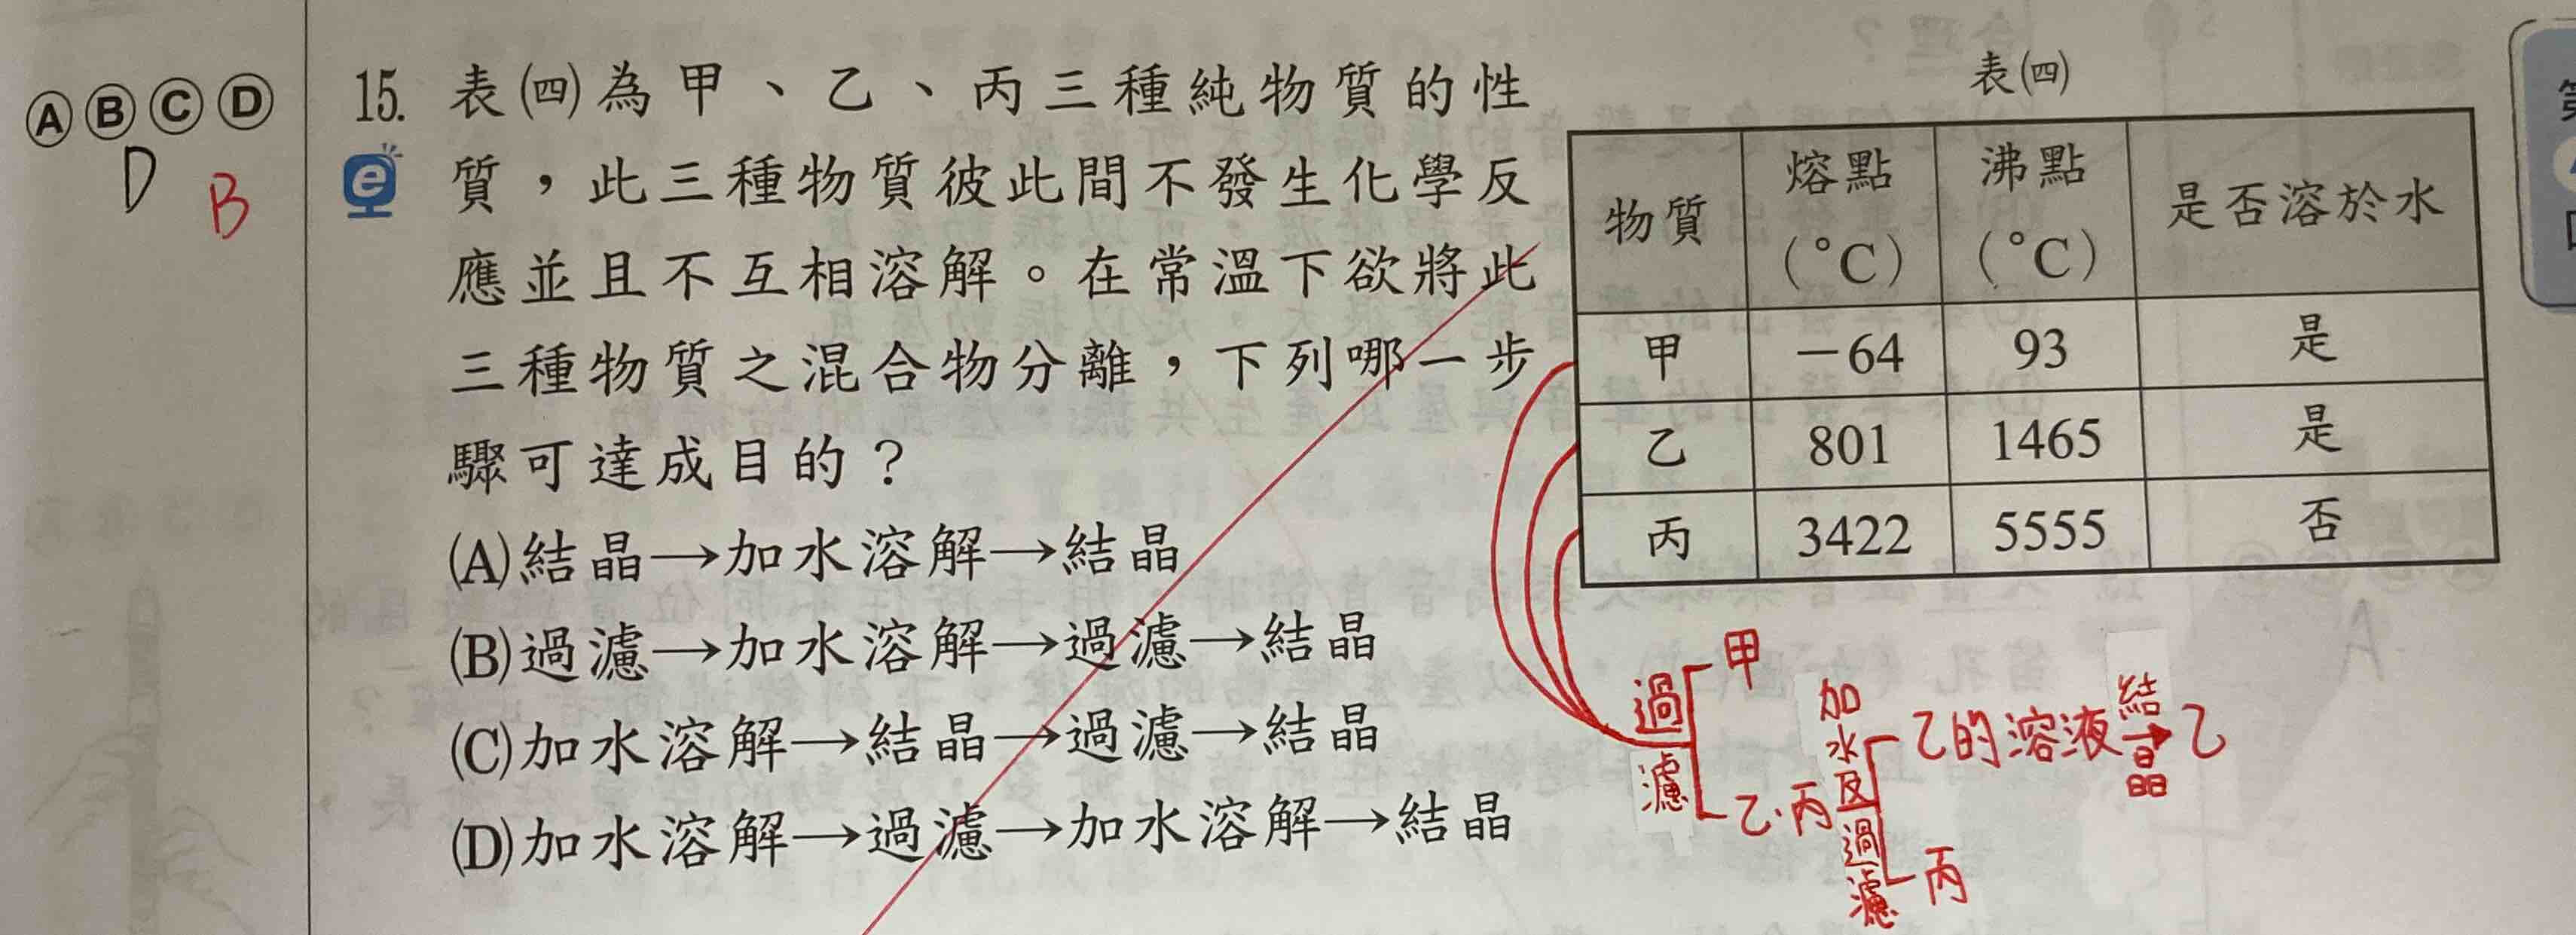 Ⓐ Ⓑ Ⓒ Ⓓ
D B
15. 表㈣為甲、乙、丙三種純物質的性
質，此三種物質彼此間不發生化學反
應並且不互相溶解。在常溫下欲將此
三種物質之混合物分離，下列哪一步
驟可達成目的？
(A)結晶→加水溶解→結晶
(B)過濾→加水溶解→過濾→結晶
(C)加水溶解→結晶→過濾→結晶
(D)加水溶解→過濾→加水溶解→結晶
表㈣
物質 熔點(°C) 沸點(°C) 是否溶於水
甲 －64 93 是
乙 801 1465 是
丙 3422 5555 否
過濾
甲
乙．丙
加水及過濾
乙的溶液 結晶→ 乙
丙
第